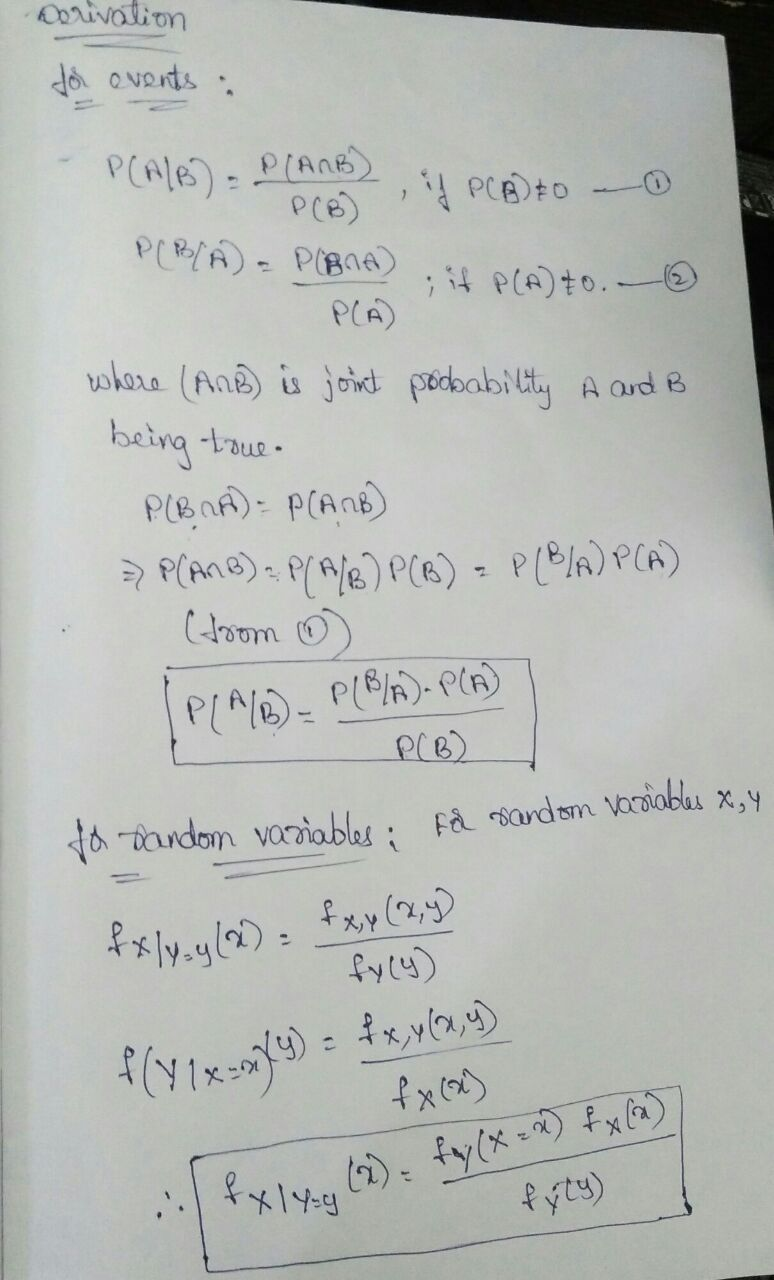 Derivation
for events :
P(A|B) = P(A∩B) / P(B) , if P(B)≠0 —①
P(B/A) = P(B∩A) / P(A) ; if P(A)≠0. —②
where (A∩B) is joint probability A and B
being true.
P(B∩A) = P(A∩B)
⇒ P(A∩B) = P(A/B) P(B) = P(B/A) P(A)
(from ①)
P(A/B) = P(B/A). P(A) / P(B)
for random variables ; For random variables x, y
f X|Y=y (x) = f X,Y (x,y) / f Y (y)
f(Y|X=x)(y) = f X,Y (x,y) / f X (x)
∴ f X|Y=y (x) = f y(X=x) f X (x) / f Y (y)